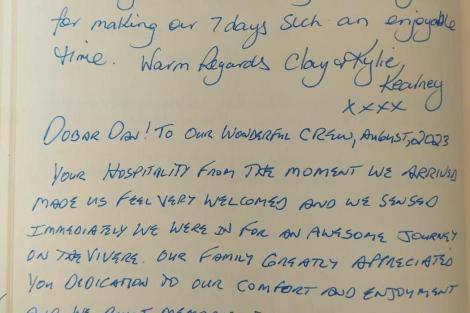 for making our 7 days such an enjoyable
time. Warm Regards Clay & Kylie,
Kearney
xxxx
DOBAR DAN! TO OUR WONDERFUL CREW, AUGUST, 2023
YOUR HOSPITALITY FROM THE MOMENT WE ARRIVED
MADE US FEEL VERY WELCOMED AND WE SENSED
IMMEDIATELY WE WERE IN FOR AN AWESOME JOURNEY
ON THE VIVERE. OUR FAMILY GREATLY APPRECIATED
YOU DEDICATION TO OUR COMFORT AND ENJOYMENT
AND WE